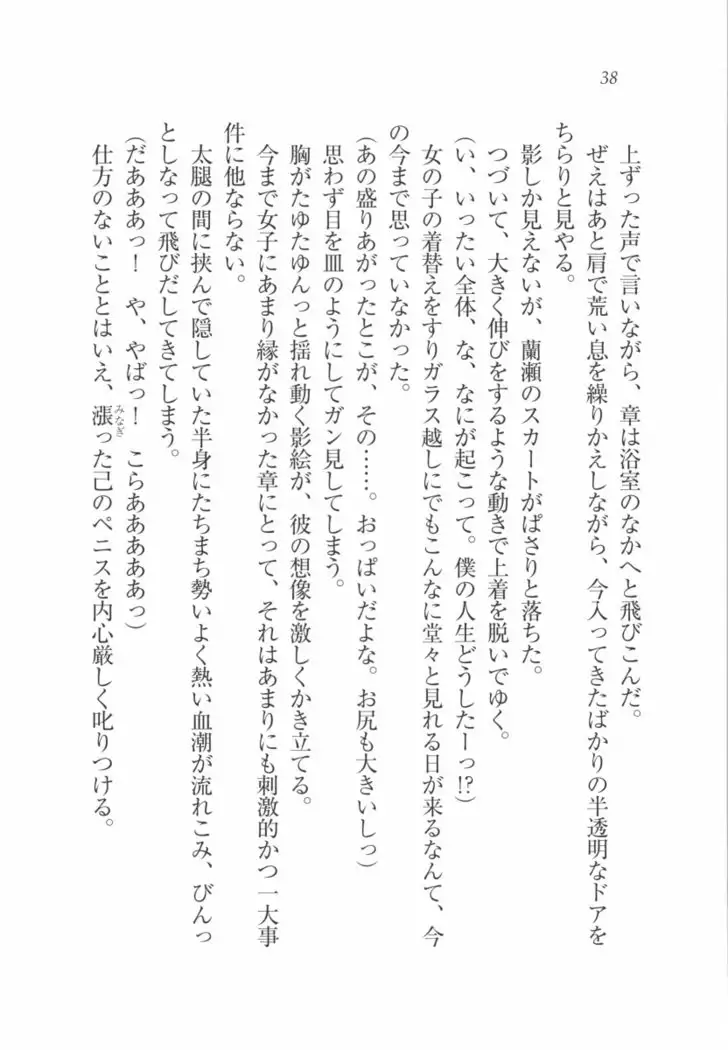 38
上ずった声で言いながら、章は浴室のなかへと飛びこんだ。
ぜえはあと肩で荒い息を繰りかえしながら、今入ってきたばかりの半透明なドアを
ちらりと見やる。
影しか見えないが、蘭瀬のスカートがぱさりと落ちた。
つづいて、大きく伸びをするような動きで上着を脱いでゆく。
(い、いったい全体、な、なにが起こって。僕の人生どうしたーっ!?)
女の子の着替えをすりガラス越しにでもこんなに堂々と見れる日が来るなんて、今
の今まで思っていなかった。
(あの盛りあがったとこが、その……。おっぱいだよな。お尻も大きいしっ)
思わず目を皿のようにしてガン見してしまう。
胸がたゆたゆんっと揺れ動く影絵が、彼の想像を激しくかき立てる。
今まで女子にあまり縁がなかった章にとって、それはあまりにも刺激的かつ一大事
件に他ならない。
太腿の間に挟んで隠していた半身にたちまち勢いよく熱い血潮が流れこみ、びんっ
としなって飛びだしてきてしまう。
(だあああっ！　や、やばっ！　こらあああああっ)
仕方のないこととはいえ、漲みなぎった己のペニスを内心厳しく叱りつける。